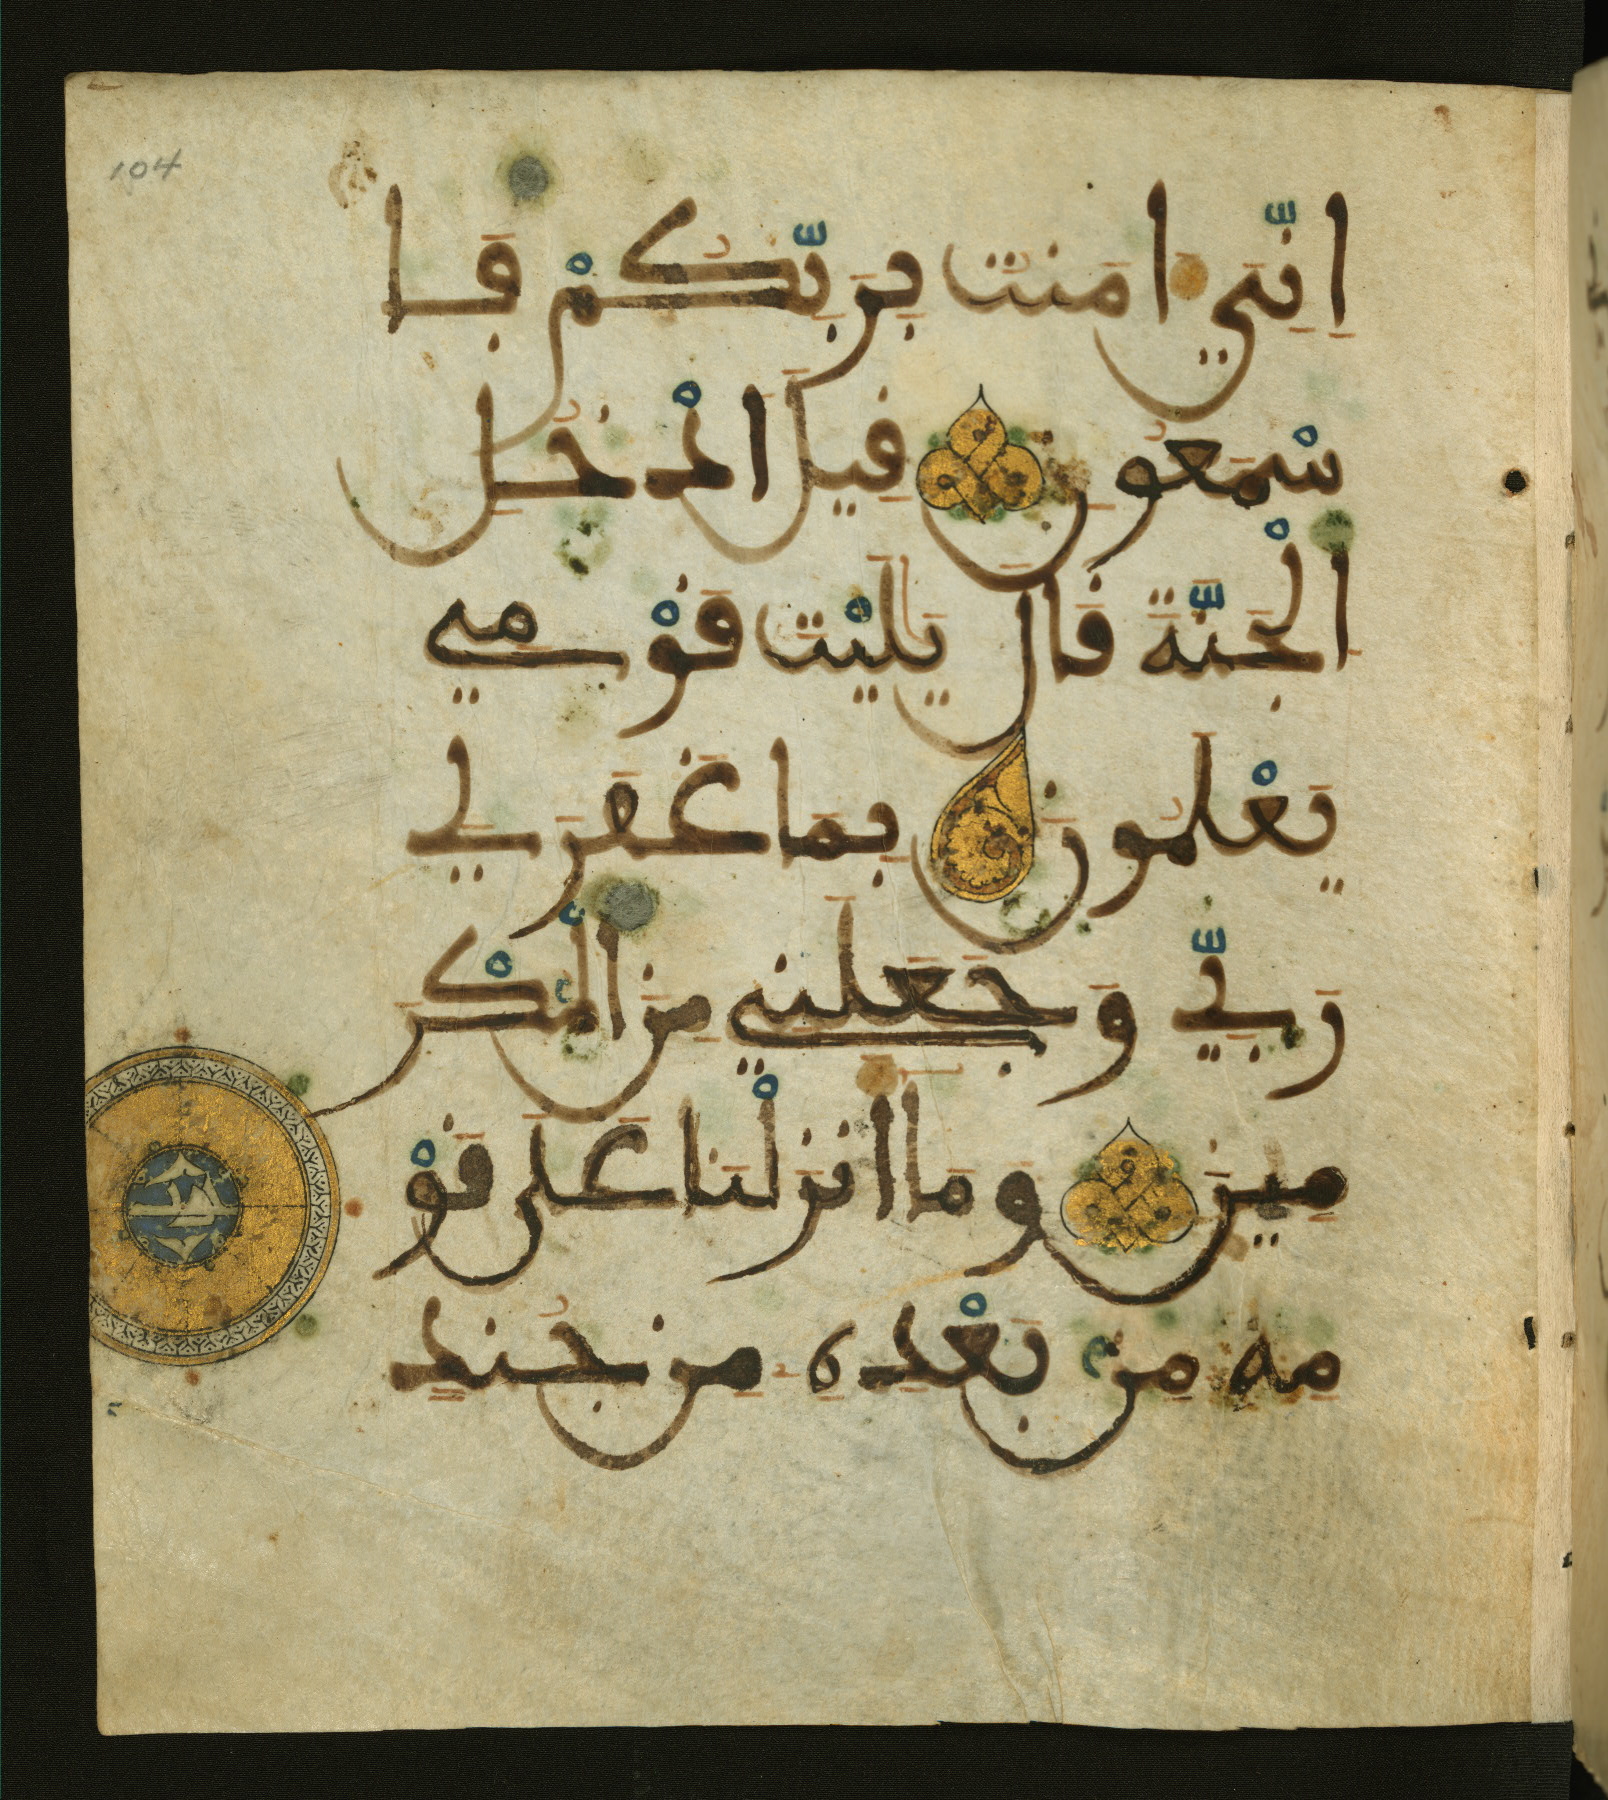 104
اِنِّيَ اٰمَنتُ بِرَبِّكُمْ فَا
سْمَعُونِ قِيلَ اُدْخُلِ
اِلْجَنَّةَ قَالَ يَٰلَيْتَ قَوْمِي
يَعْلَمُونَ بِمَا غَفَرَ لِي
رَبِّي وَجَعَلَنِي مِنَ اَلْمُكْرَ
مِينَ وَمَا أَنزَلْنَا عَلَىٰ قَوْ
مِهِ مِنۢ بَعْدِهِ مِن جُندٍ